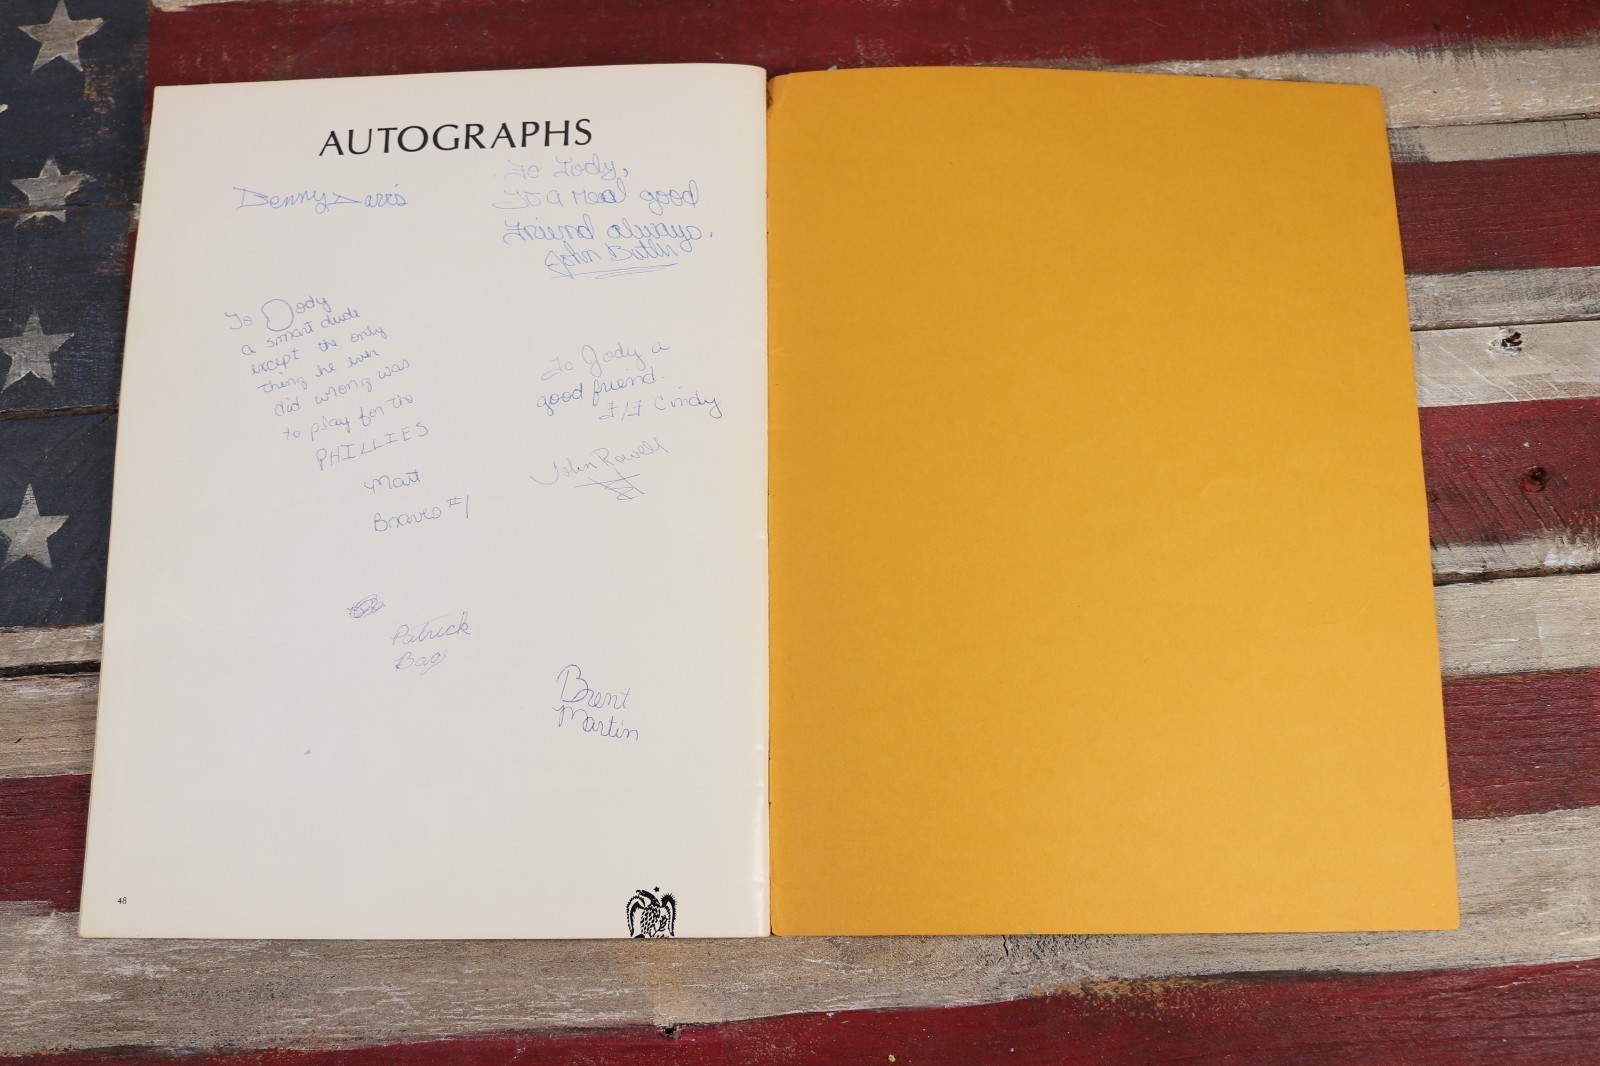 AUTOGRAPHS
Denny Davis
To Jody,
To a real good
Friend always.
John Butler
To Jody
a smart dude
except the only
thing he ever
did wrong was
to play for the
PHILLIES
Matt
Braves #1
To Jody a
good friend.
F/F Cindy
John Rowell
Patrick
Brent
Martin
48